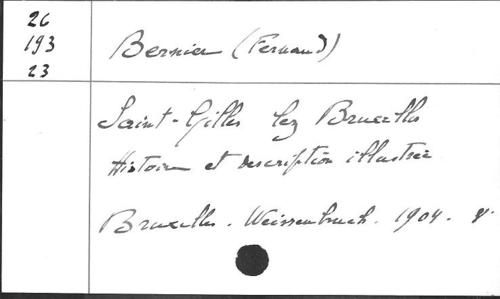 26
193
23
Bernier (Fernand)
Saint-Gilles lez Bruxelles
Histoire et description illustrée
Bruxelles. Weissenbruch. 1904.